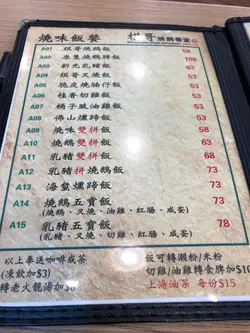 燒味飯餐
A01 棋哥燒鵝飯 53
A02 原隻燒鵝髀飯 108
A03 新光乳豬飯 63
A04 棋哥叉燒飯
A05 脆皮燒腩仔飯
A06 桂香切雞飯
A07 桶子豉油雞飯
A08 佛山燻蹄飯
A09 燒味雙拼飯 58
A10 燒鵝雙拼飯 63
A11 乳豬雙拼飯 73
A12 乳豬燒鵝飯 73
A13 海蜇燻蹄飯 68
A14 燒鵝五寶飯 73
(燒鵝、叉燒、油雞、紅腸、咸蛋)
A15 乳豬五寶飯 78
(乳豬、叉燒、切雞、紅腸、咸蛋)
以上奉送咖啡或茶
(凍飲加$3)
轉老火靚湯加$
飯可轉瀨粉/米粉
切雞/油雞轉食髀加$10
上湯油菜 每份$15